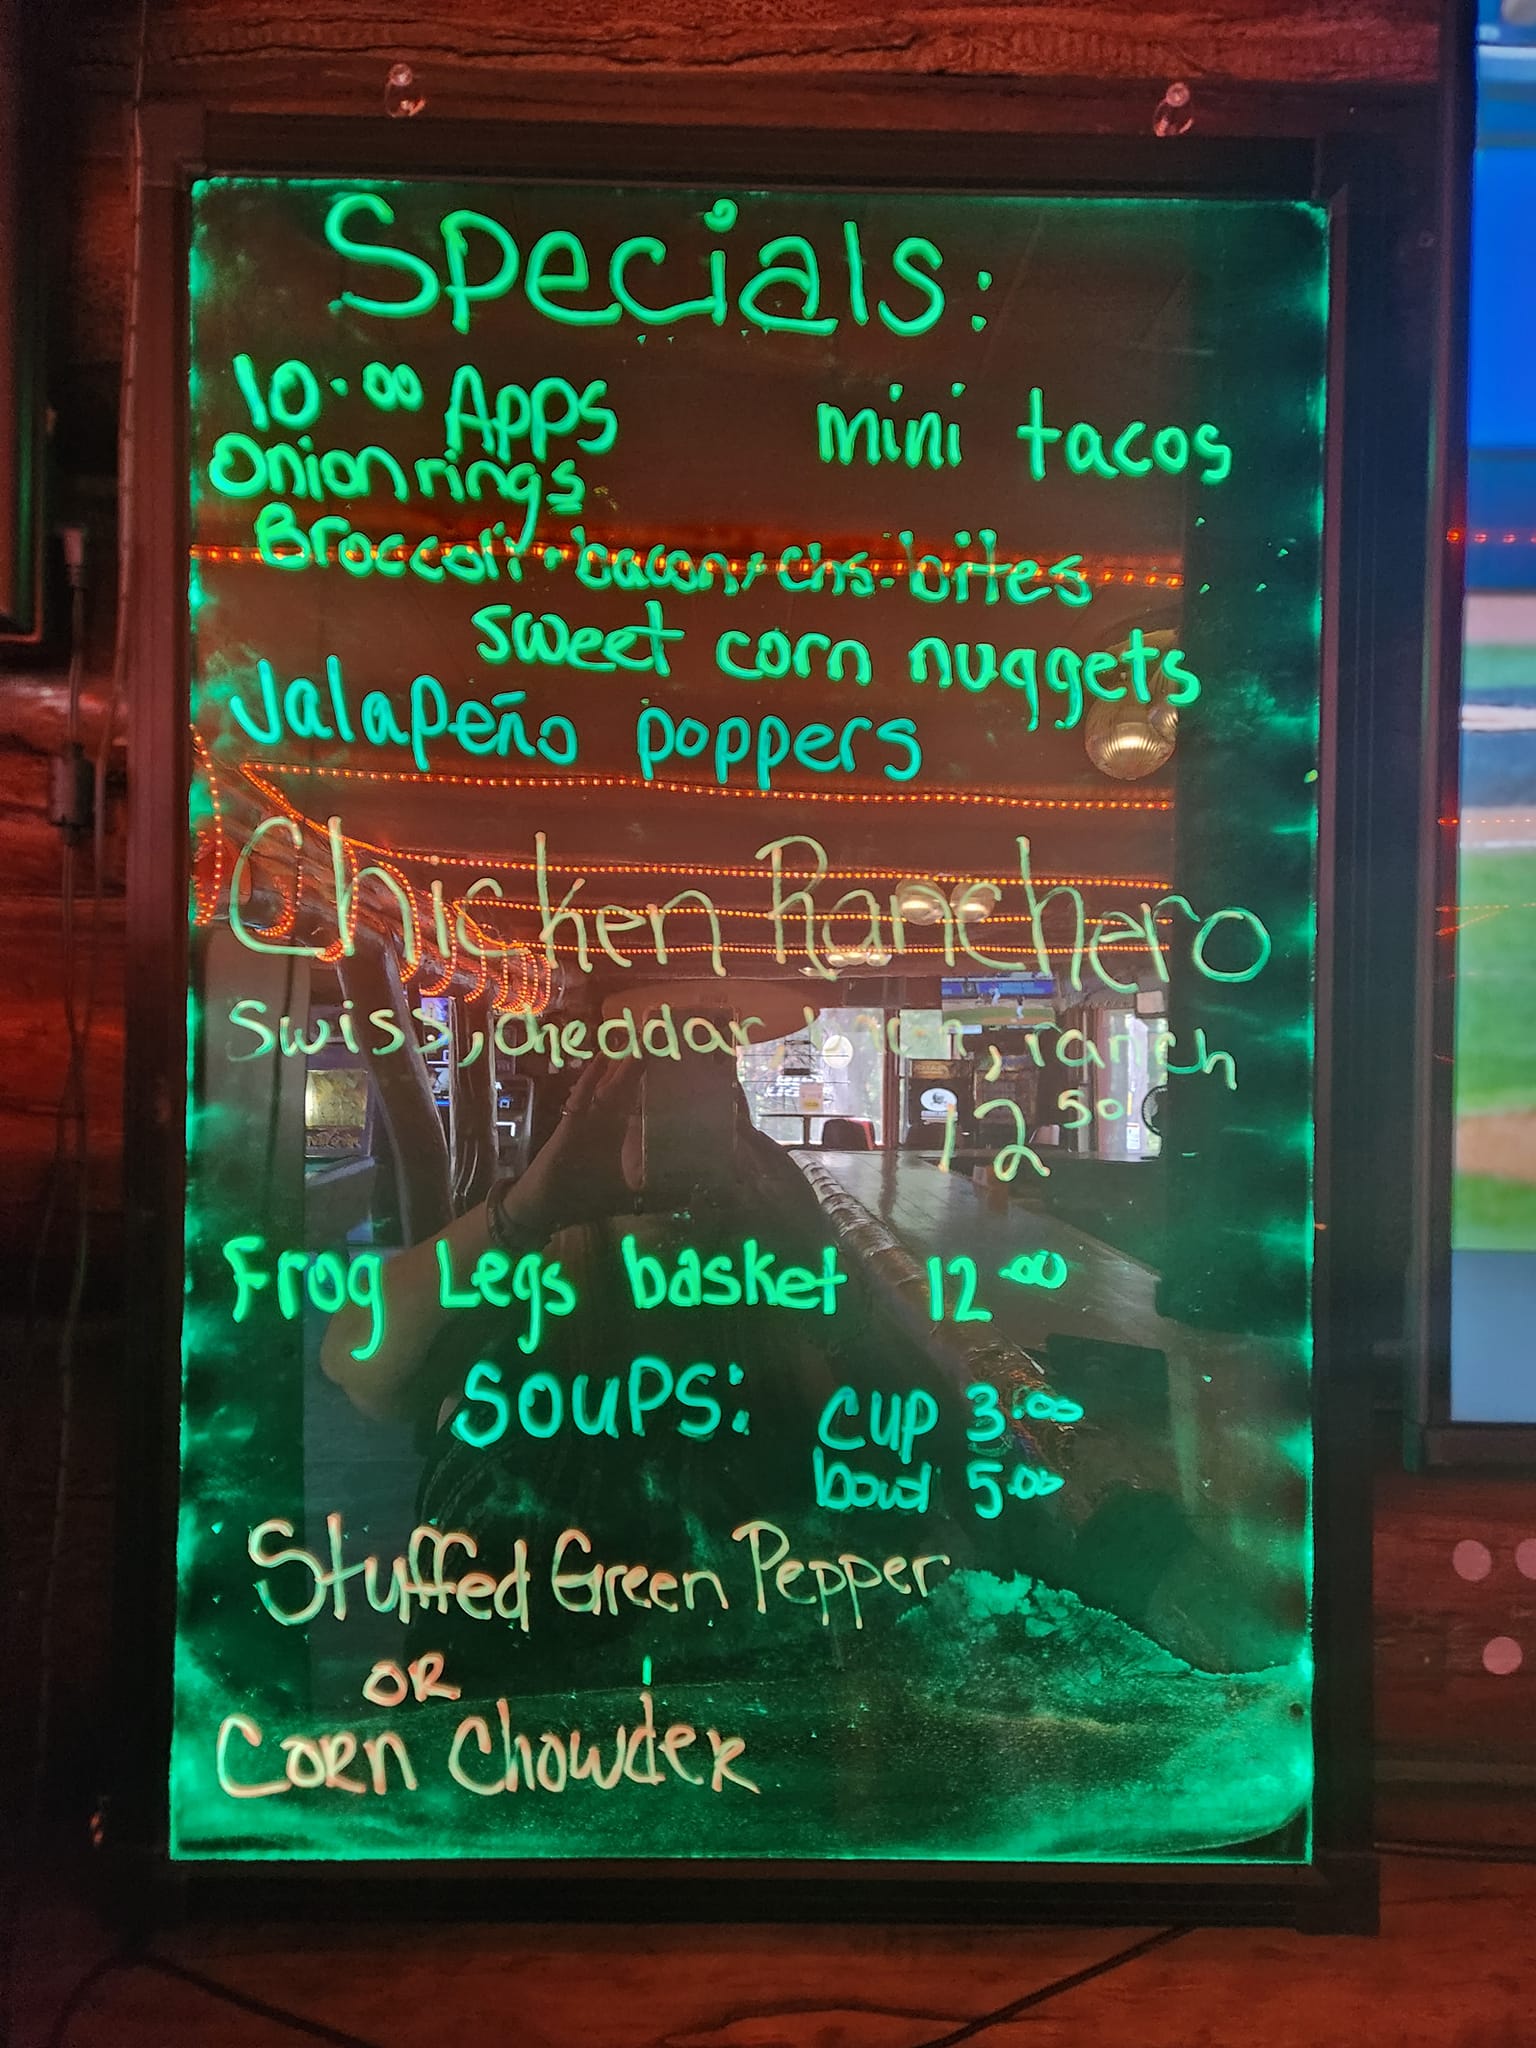 Specials:
10.00 Apps
mini tacos
Onion rings
Broccoli + bacon + chs. bites
sweet corn nuggets
Jalapeño poppers
Chicken Ranchero
Swiss, cheddar, onion, ranch
12 50
Frog Legs basket 12.00
SOUPS: CUP 3.00
bowl 5.00
Stuffed Green Pepper
OR
Corn Chowder